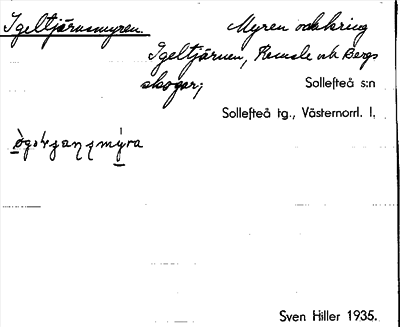 Igeltjärnsmyren. Myren omkring
Igeltjärnen, Remsle och Bergs
skogar;
Sollefteå s:n
Sollefteå tg., Västernorrl. l.
Sven Hiller 1935.